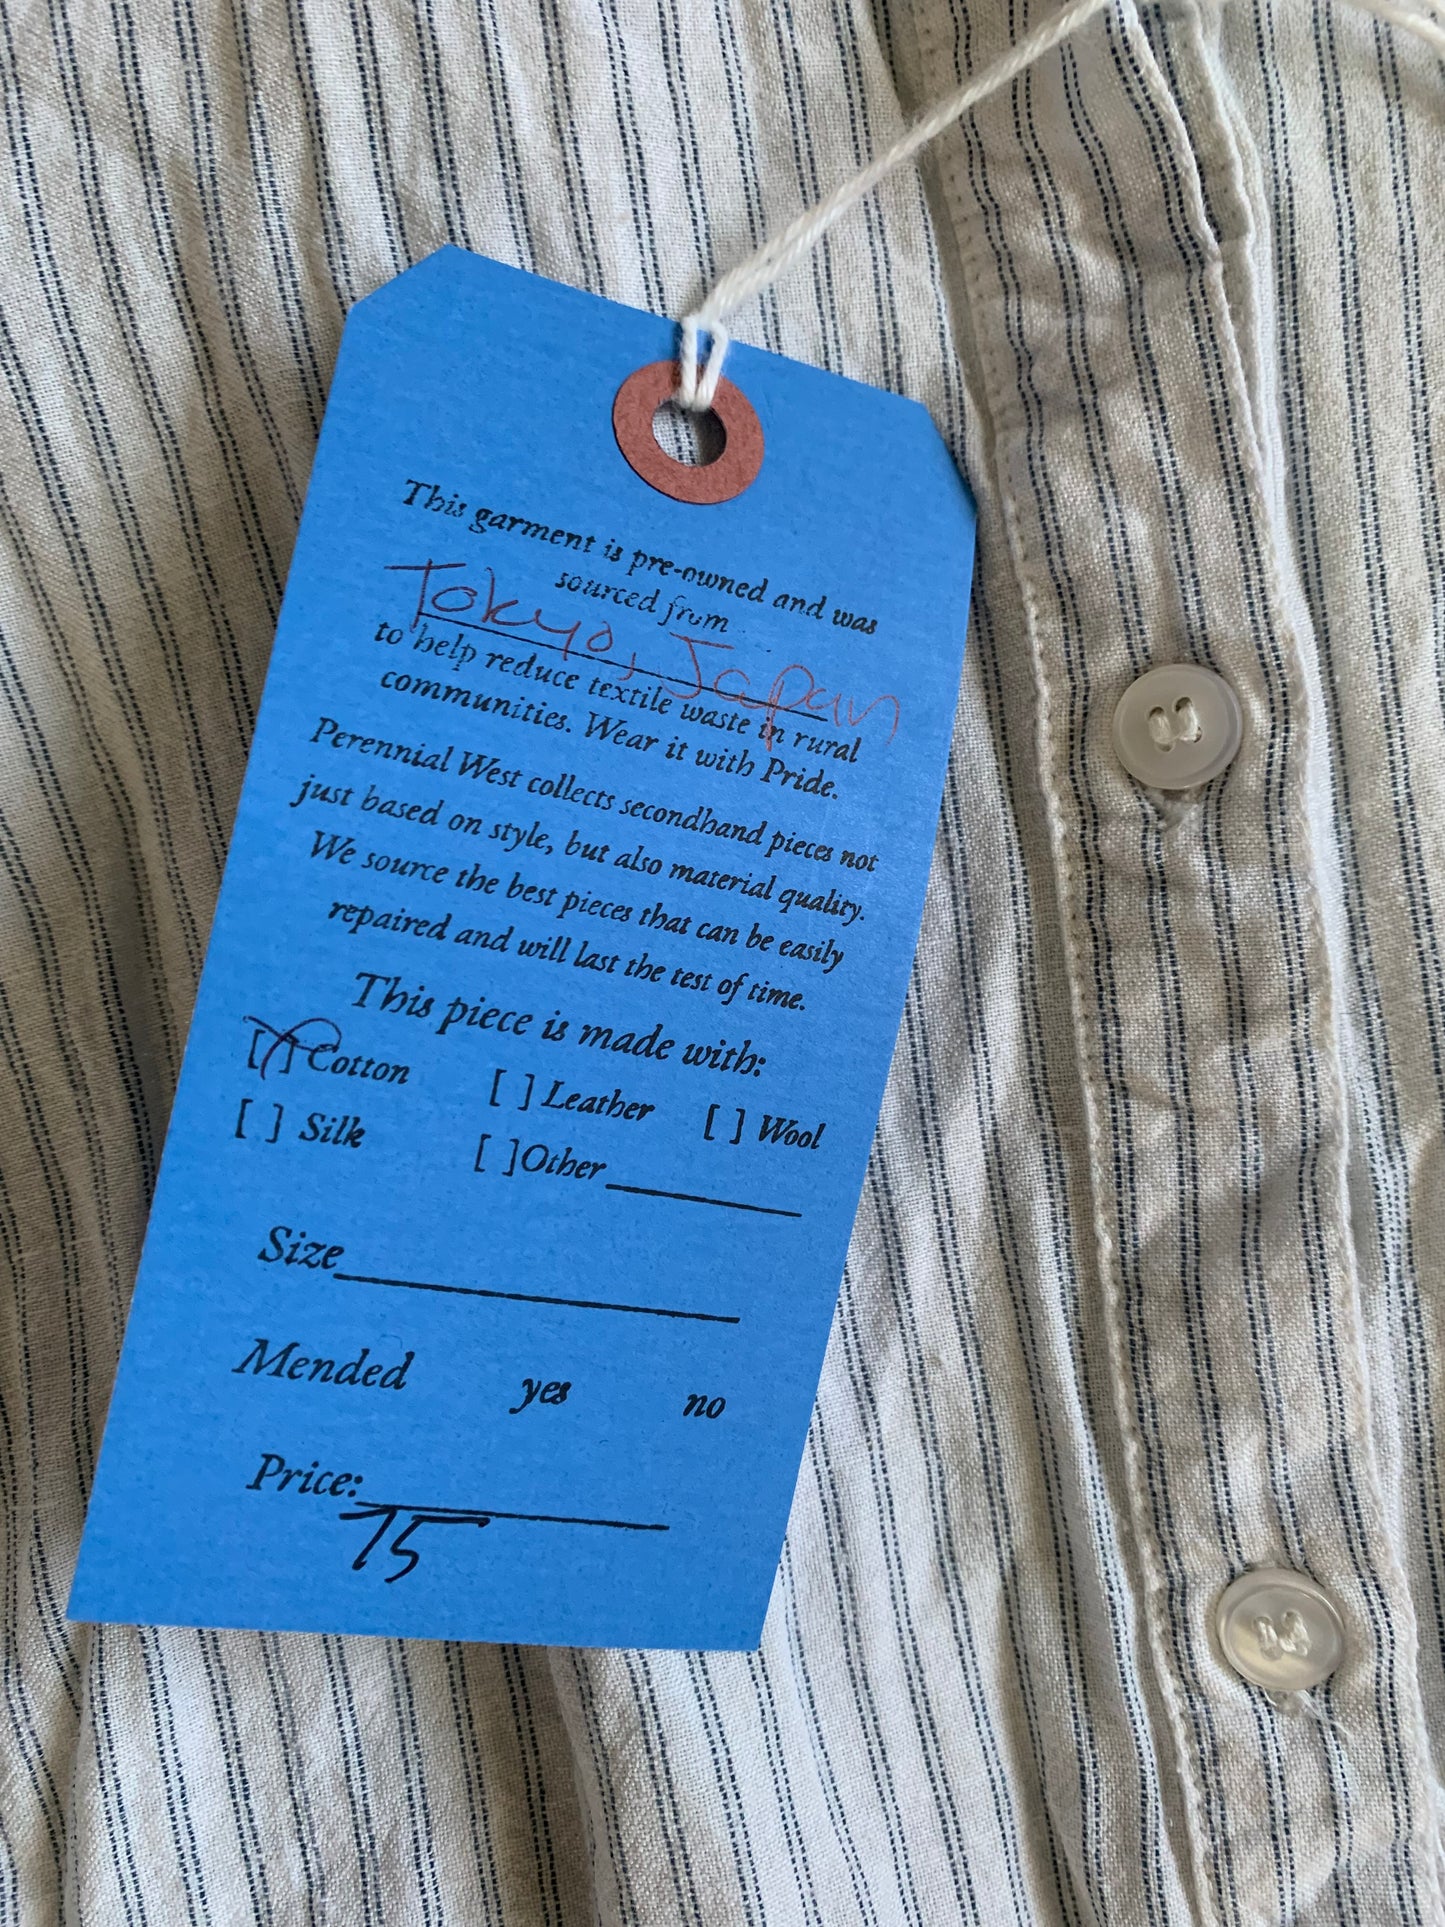 This garment is pre-owned and was
sourced from
Tokyo, Japan
to help reduce textile waste in rural
communities. Wear it with Pride.
Perennial West collects secondhand pieces not
just based on style, but also material quality.
We source the best pieces that can be easily
repaired and will last the test of time.
This piece is made with:
[X] Cotton [ ] Leather [ ] Wool
[ ] Silk [ ]Other
Size
Mended yes no
Price:
75